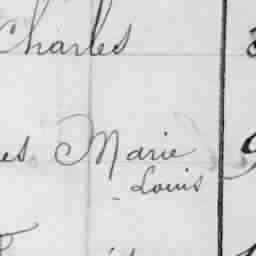 Charles
es Marie
- Louis